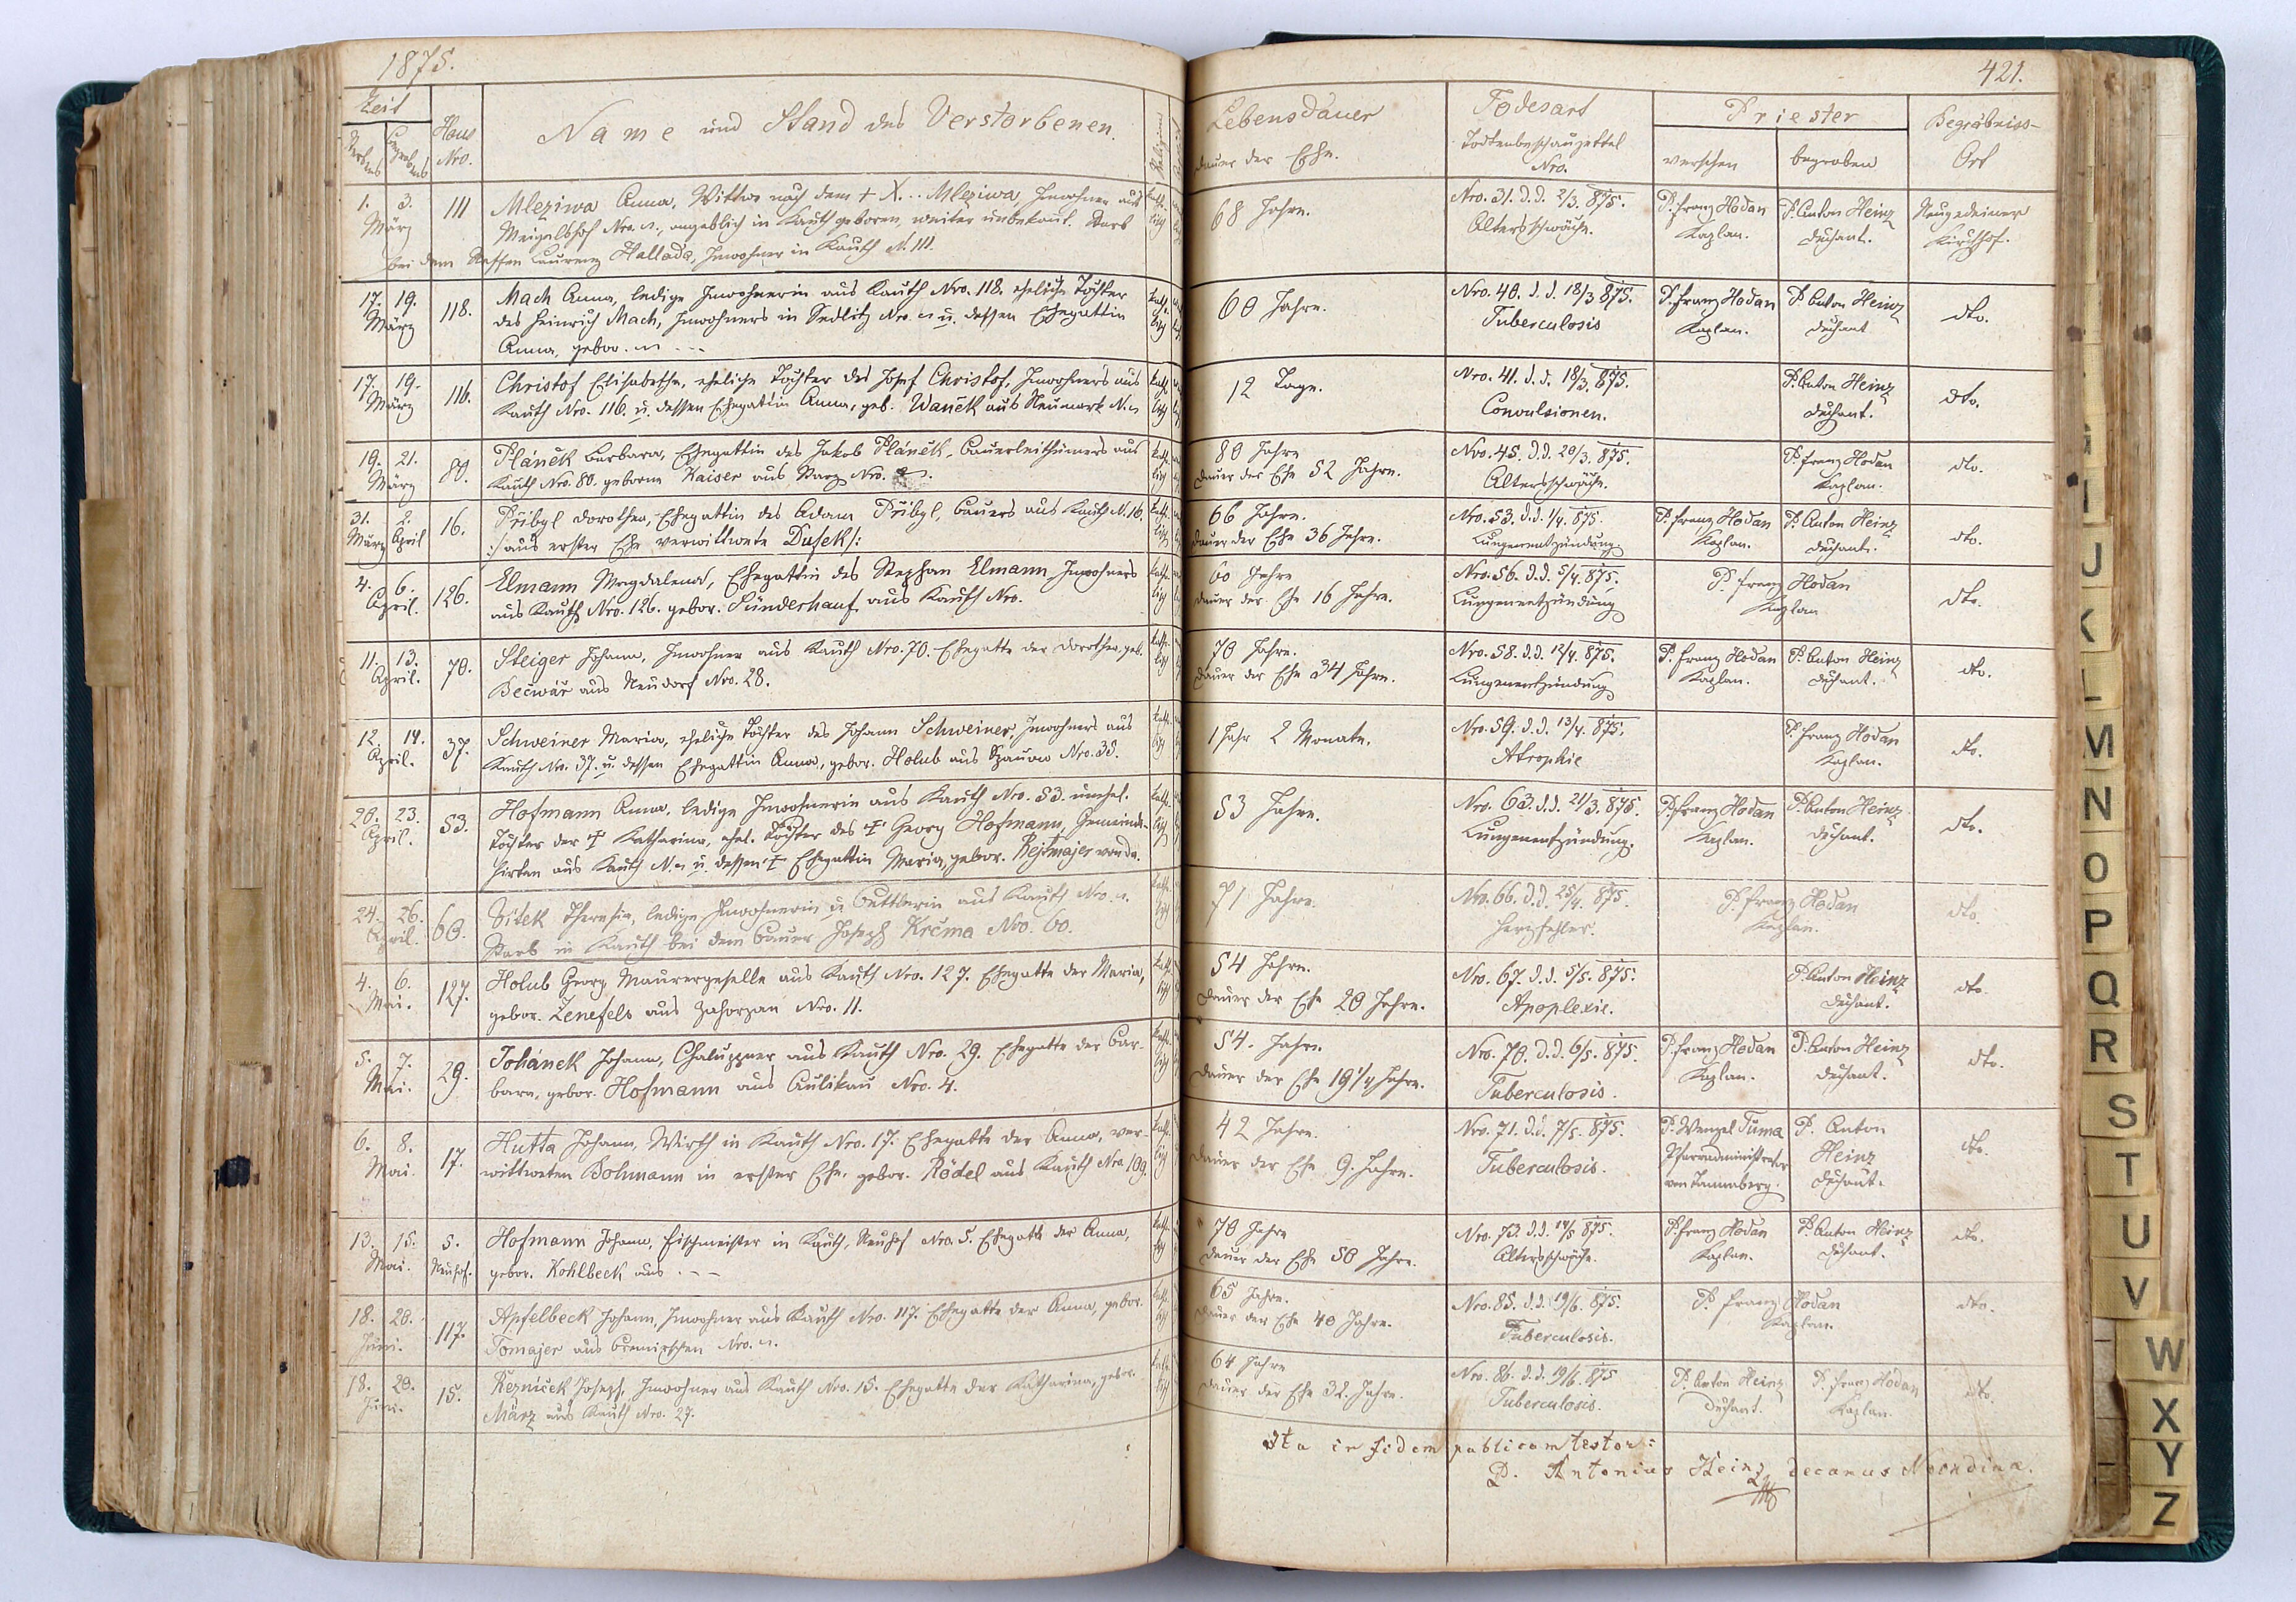 1875.
421.
Zeit
Sterbens
Begrabens
Haus
Nro.
Name und Stand des Verstorbenen.
Religion
Lebensdauer
Dauer der Ehe.
Todesart
Todtenbeschauzettel
Nro.
Priester
versehen
begraben
Begräbniss-
Ort
1. 3.
März
111
Mleziwa Anna, Wittwe nach dem † X... Mleziwa, Inwohner aus
Meigelshof Nro. n., angeblich in Kauth geboren, weiter unbekannt. Starb
bei dem Neffen Laurenz Hallada, Inwohner in Kauth N. 111.
katho-
lisch
68 Jahre.
Nro. 31. d.d. 2/3. 875.
Altersschwäche.
P. Franz Hodan
Kaplan.
P. Anton Heinz
Dechant.
Neugedeiner
Kirchhof.
17. 19.
März
118.
Mach Anna, ledige Inwohnerin aus Kauth Nro. 118. eheliche Tochter
des Heinrich Mach, Inwohners in Sedlitz Nro. n u. dessen Ehegattin
Anna, gebor. n ---
katho-
lisch
60 Jahre.
Nro. 40. d.d. 18/3 875.
Tuberculosis
P. Franz Hodan
Kaplan.
P. Anton Heinz
Dechant
dto.
17. 19.
März
116.
Christof Elisabetha, eheliche Tochter des Josef Christof, Inwohners aus
Kauth Nro. 116. u. dessen Ehegattin Anna, geb. Waněk aus Neumark N. n
kath.
lisch
12 Tage.
Nro. 41. d.d. 18/3. 875.
Convulsionen.
P. Anton Heinz
Dechant.
dto.
19. 21.
März
80.
Pláněk Barbara, Ehegattin des Jakob Pláněk, Bauerleithümers aus
Kauth Nro. 80. geborene Kaiser aus Starz Nro.
kath.
lisch
80 Jahre
Dauer der Ehe 52 Jahre.
Nro. 45. d.d. 20/3. 875.
Altersschwäche.
P. Franz Hodan
Kaplan.
dto.
31. 2.
März April
16.
Přibyl Dorothea, Ehegattin des Adam Přibyl, Bauers aus Kauth N. 16.
:/ aus erster Ehe verwittwete Dufek /:
kath.
lisch
66 Jahre.
Dauer der Ehe 36 Jahre.
Nro. 53. d.d. 1/4. 875.
Lungenentzündung.
P. Franz Hodan
Kaplan.
P. Anton Heinz
Dechant.
dto.
4. 6.
April.
126.
Elmann Magdalena, Ehegattin des Stephan Elmann Inwohners
aus Kauth Nro. 126. gebor. Sünderhauf aus Kauth Nro.
kath.
lisch
60 Jahre
Dauer der Ehe 16 Jahre.
Nro. 56. d.d. 5/4. 875.
Lungenentzündung
P. Franz Hodan
Kaplan
dto.
11. 13.
April.
70.
Steiger Johann, Inwohner aus Kauth Nro. 70. Ehegatte der Dorothea, geb.
Bečwář aus Neudorf Nro. 28.
kath.
lisch
70 Jahre.
Dauer der Ehe 34 Jahre.
Nro. 58. d.d. 12/4. 875.
Lungenentzündung
P. Franz Hodan
Kaplan.
P. Anton Heinz
Dechant.
dto.
12. 14.
April.
37.
Schweiner Maria, eheliche Tochter des Johann Schweiner, Inwohners aus
Kauth Nro. 37. u. dessen Ehegattin Anna, gebor. Holub aus Spanow Nro. 35.
kath.
lisch
1 Jahr 2 Monate.
Nro. 59. d.d. 13/4. 875.
Atrophie
P. Franz Hodan
Kaplan.
dto.
20. 23.
April.
53.
Hofmann Anna, ledige Inwohnerin aus Kauth Nro. 53. unehel.
Tochter der † Katharina, ehel. Tochter des † Georg Hofmann, Gemeinde-
hirten aus Kauth N. n u. dessen † Ehegattin Maria, gebor. Rejtmajer von da.
kath.
lisch
53 Jahre.
Nro. 63. d.d. 21/3. 875.
Lungenentzündung.
P. Franz Hodan
Kaplan.
P. Anton Heinz
Dechant.
dto.
24. 26.
April.
60.
Vítek Theresia, ledige Inwohnerin u. Bettlerin aus Kauth Nro. n.
Starb in Kauth bei dem Bauer Joseph Krčma Nro. 60.
kath.
lisch
71 Jahre.
Nro. 66. d.d. 25/4. 875.
Herzfehler.
P. Franz Hodan
Kaplan.
dto.
4. 6.
Mai.
127.
Holub Georg Maurergeselle aus Kauth Nro. 127. Ehegatte der Maria,
gebor. Zenefels aus Zahorzan Nro. 11.
kath.
lisch
54 Jahre.
Dauer der Ehe 20 Jahre.
Nro. 67. d.d. 5/5. 875.
Apoplexie.
P. Anton Heinz
Dechant.
dto.
5. 7.
Mai.
29.
Johánek Johann, Chaluppner aus Kauth Nro. 29. Ehegatte der Bar-
bara, gebor. Hofmann aus Aulikau Nro. 4.
kath.
lisch
54. Jahre.
Dauer der Ehe 19 1/4 Jahre.
Nro. 70. d.d. 6/5. 875.
Tuberculosis.
P. Franz Hodan
Kaplan.
P. Anton Heinz
Dechant.
dto.
6. 8.
Mai.
17.
Hutta Johann, Wirth in Kauth Nro. 17. Ehegatte der Anna, ver-
wittweten Bohmann in erster Ehe, gebor. Rödel aus Kauth Nro. 109.
kath.
lisch
42 Jahre.
Dauer der Ehe 9. Jahre.
Nro. 71. d.d. 7/5. 875.
Tuberculosis.
P. Wenzel Tuma
Pfarradministrator
von Tannaberg.
P. Anton
Heinz
Dechant.
dto.
13. 15.
Mai.
5.
Neuhof.
Hofmann Johann, Fischmeister in Kauth, Neuhof Nro. 5. Ehegatte der Anna,
gebor. Kohlbeck aus ---
kath.
lisch
70 Jahre
Dauer der Ehe 50 Jahre.
Nro. 73. d.d. 14/5 875.
Altersschwäche.
P. Franz Hodan
Kaplan.
P. Anton Heinz
Dechant.
dto.
18. 20.
Juni.
117.
Apfelbeck Johann, Inwohner aus Kauth Nro. 117. Ehegatte der Anna, gebor.
Tomajer aus Nro. n.
kath.
lisch
65 Jahre.
Dauer der Ehe 40 Jahre.
Nro. 85. d.d. 19/6. 875.
Tuberculosis.
P. Franz Hodan
Kaplan.
dto.
18. 20.
Juni.
15.
Řezníček Joseph, Inwohner aus Kauth Nro. 15. Ehegatte der Katharina, gebor.
März aus Kauth Nro. 27.
kath.
lisch
64 Jahre
Dauer der Ehe 32. Jahre.
Nro. 86. d.d. 19/6. 875
Tuberculosis.
P. Anton Heinz
Dechant.
P. Franz Hodan
Kaplan.
dto.
Ita in fidem publicam testor:
P. Antonius Heinz Decanus Neogdinae.
I
J
K
L
M
N
O
P
Q
R
S
T
U
V
W
X
Y
Z